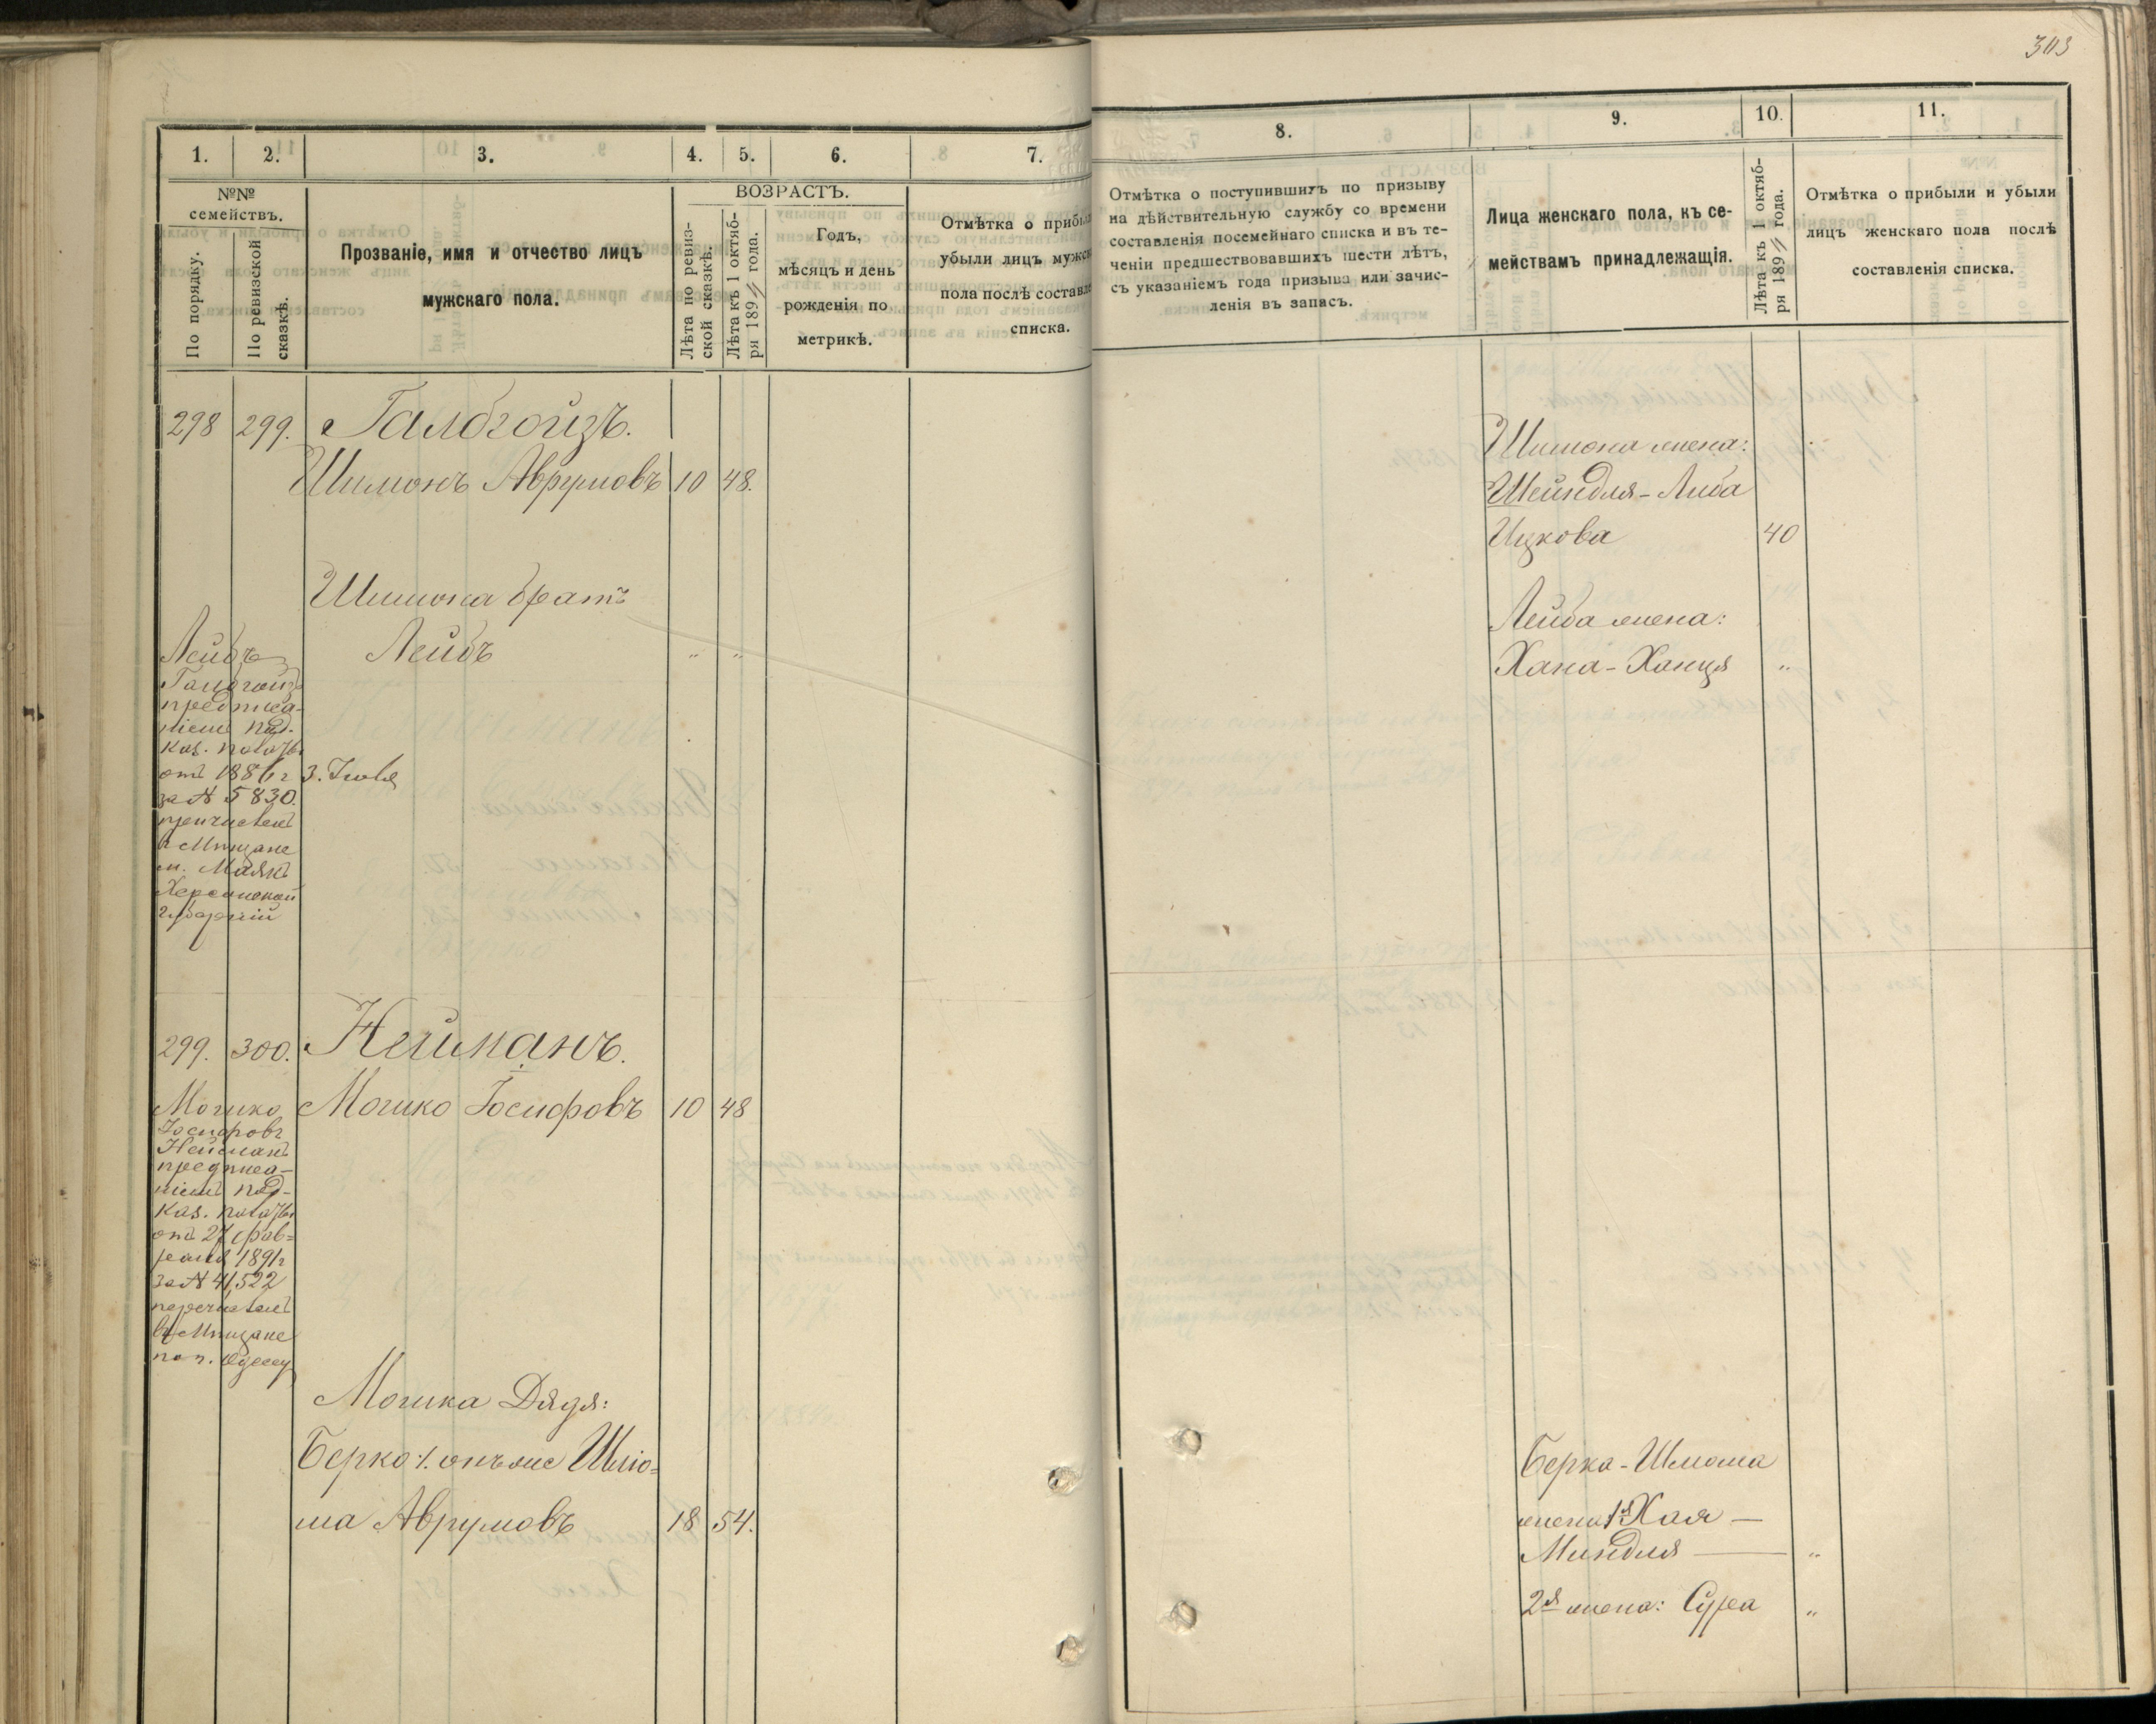 303
1. 2. 3. 4. 5. 6. 7.
№№ семействъ.
По порядку.
По ревизской сказкѣ.
Прозваніе, имя и отчество лицъ
мужскаго пола.
ВОЗРАСТЪ.
Лѣта по ревиз-
ской сказкѣ.
Лѣта къ 1 октяб-
ря 189 года.
Годъ,
мѣсяцъ и день
рожденія по
метрикѣ.
Отмѣтка о прибы
убыли лицъ мужс
пола послѣ составл
списка.
298 299. Галбгойзъ.
Шимонъ Аврумовъ 10 48.
Шимона братъ
Лейбъ " "
Лейбъ
Галбгойзъ
предписа-
ніемъ Под.
Каз. Палаты
отъ 1886 г 3. Іюля
за № 5830.
причисленъ
в Мѣщане
м. Маякъ
Херсонской
губерніи
299. 300. Нейманъ.
Мошко Іосифовъ 10 48
Мошко
Іосифовъ
Нейманъ
предписа-
ніемъ Под-
Каз. Палаты
отъ 27 фев-
раля 1891 г
за №
перечисленъ
въ Мѣщане
Одессу
Мошка Дядя:
Берко онъ же Шліо-
ма Аврумовъ 18 54.
8. 9. 10. 11.
Отмѣтка о поступившихъ по призыву
на дѣйствительную службу со времени
составленія посемейнаго списка и въ те-
ченіи предшествовавшихъ шести лѣтъ,
съ указаніемъ года призыва или зачис-
ленія въ запасъ.
Лица женскаго пола, къ се-
мействамъ принадлежащія.
Лѣта къ 1 октяб-
ря 189 года.
Отмѣтка о прибыли и убыли
лицъ женскаго пола послѣ
составленія списка.
Шимона жена:
Шейндля-Либа
Ицкова 40
Лейба жена:
Хана-Ханця "
Берка-Шлома
жена 1я Хая —
Миндля — "
2я жена: Сура "